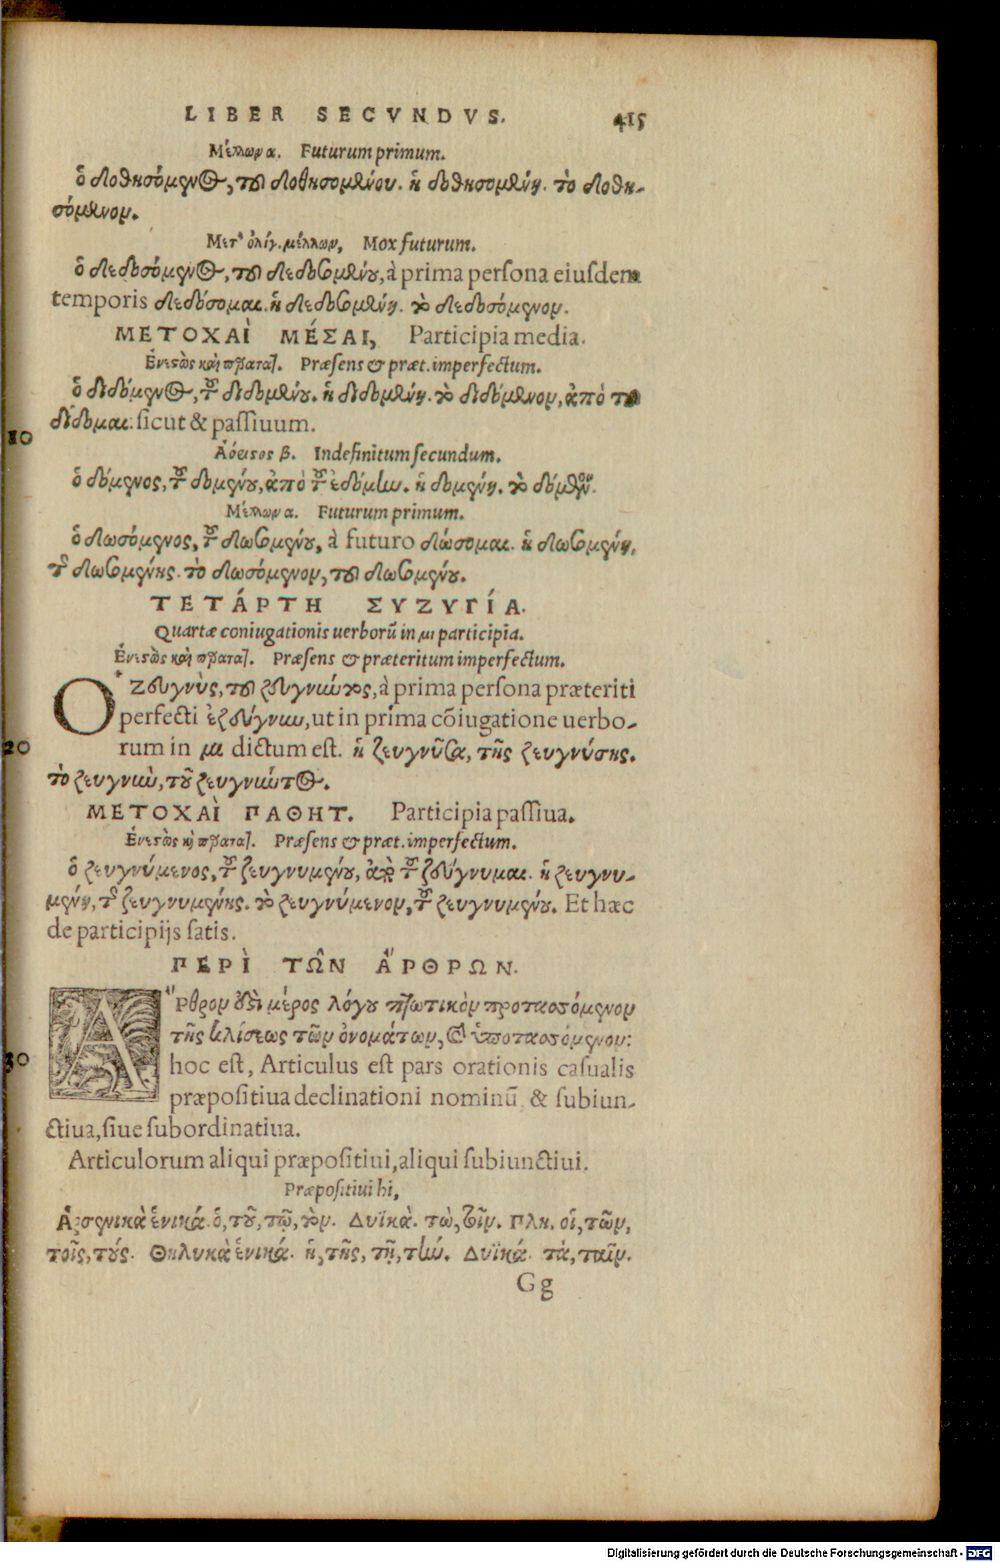 LIBER SECVNDVS. 415
Μέλλων α. Futurum primum.
ὁ δοθησόμενος, τοῦ δοθησομένου. ἡ δοθησομένη. τὸ δοθη-
σόμενον.
Μετ' ὀλίγ. μέλλων, Mox futurum.
ὁ δεδοσόμενος, τοῦ δεδοσομένου, à prima persona eiusdem
temporis δεδόσομαι. ἡ δεδοσομένη. τὸ δεδοσόμενον.
ΜΕΤΟΧΑῚ ΜΈΣΑΙ, Participia media.
Ἐνεστὼς καὶ παρατατ. Præsens & præt. imperfectum.
ὁ διδόμενος, τοῦ διδομένου. ἡ διδομένη. τὸ διδόμενον, ἀπὸ τοῦ
10 δίδομαι. sicut & passiuum.
Ἀόριστος β. Indefinitum secundum.
ὁ δόμενος, τοῦ δομένου, ἀπὸ τοῦ ἐδόμην. ἡ δομένη. τὸ δόμενον.
Μέλλων α. Futurum primum.
ὁ δωσόμενος, τοῦ δωσομένου, à futuro δώσομαι. ἡ δωσομένη,
τῆς δωσομένης. τὸ δωσόμενον, τοῦ δωσομένου.
ΤΕΤΆΡΤΗ ΣΥΖΥΓΊΑ.
Quartæ coniugationis uerborū in μι participia.
Ἐνεστὼς καὶ παρατατ. Præsens & præteritum imperfectum.
Ὁ ζευγνὺς, τοῦ ζευγνύντος, à prima persona præteriti
perfecti ἐζεύγνυν, ut in prima cōiugatione uerbo-
20 rum in μι dictum est. ἡ ζευγνῦσα, τῆς ζευγνύσης.
τὸ ζευγνὺν, τοῦ ζευγνύντος.
ΜΕΤΟΧΑῚ ΠΑΘΗΤ. Participia passiua.
Ἐνεστὼς κὴ παρατατ. Præsens & præt. imperfectum.
ὁ ζευγνύμενος, τοῦ ζευγνυμένου, ἀπὸ τοῦ ζεύγνυμαι. ἡ ζευγνυ-
μένη, τῆς ζευγνυμένης. τὸ ζευγνύμενον, τοῦ ζευγνυμένου. Et hæc
de participijs satis.
ΠΕΡῚ ΤΩ͂Ν ἌΡΘΡΩΝ.
Ἄρθρον ἐστὶ μέρος λόγου πτωτικὸν προτασσόμενον
τῆς κλίσεως τῶν ὀνομάτων, καὶ ὑποτασσόμενον:
30 hoc est, Articulus est pars orationis casualis
præpositiua declinationi nominū, & subiun-
ctiua, siue subordinatiua.
Articulorum aliqui præpositiui, aliqui subiunctiui.
Præpositiui hi,
Ἀρσενικὰ ἑνικά. ὁ, τοῦ, τῷ, τὸν. Δυϊκὰ. τὼ, τοῖν. Πλη. οἱ, τῶν,
τοῖς, τούς. Θηλυκὰ ἑνικά. ἡ, τῆς, τῇ, τήν. Δυϊκά. τὰ, ταῖν.
Gg
Digitalisierung gefördert durch die Deutsche Forschungsgemeinschaft - DFG